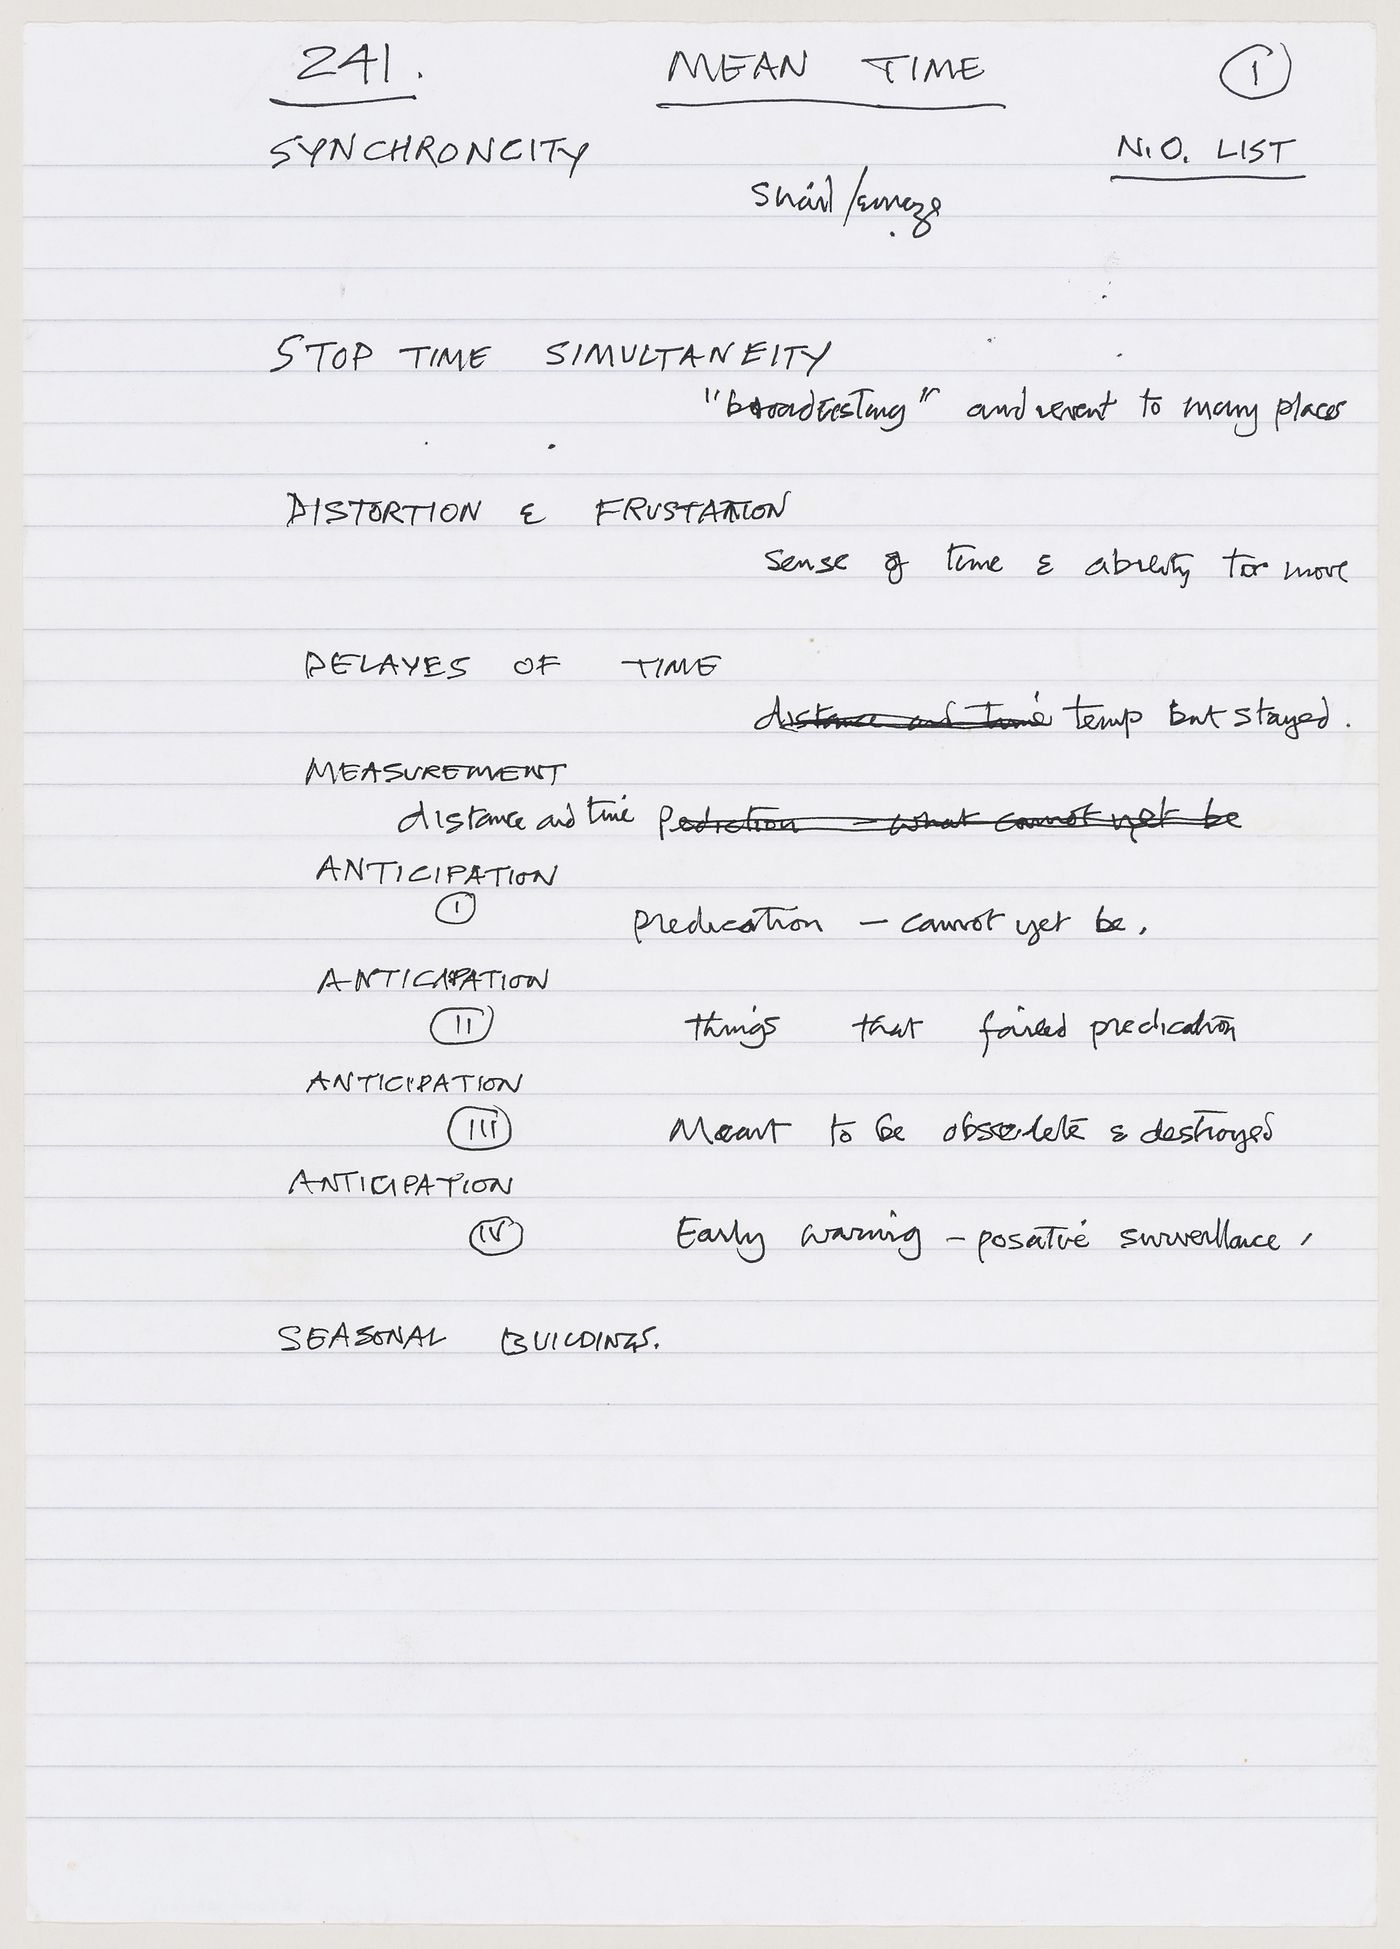 241. MEAN TIME 1
SYNCHRONCITY N.O. LIST
STOP TIME SIMULTANEITY
"broadcasting" and event to many places
DISTORTION & FRUSTATION
sense of time & ability to move
DELAYES OF TIME
distance and time temp but stayed.
MEASUREMENT
distance and time pediction - what cannot yet be
ANTICIPATION
I predication - cannot yet be.
ANTICIPATION
II things that failed predication
ANTICIPATION
III Meant to be obsolete & destroyed
ANTICIPATION
IV Early warning - posative surveillance
SEASONAL BUILDINGS.